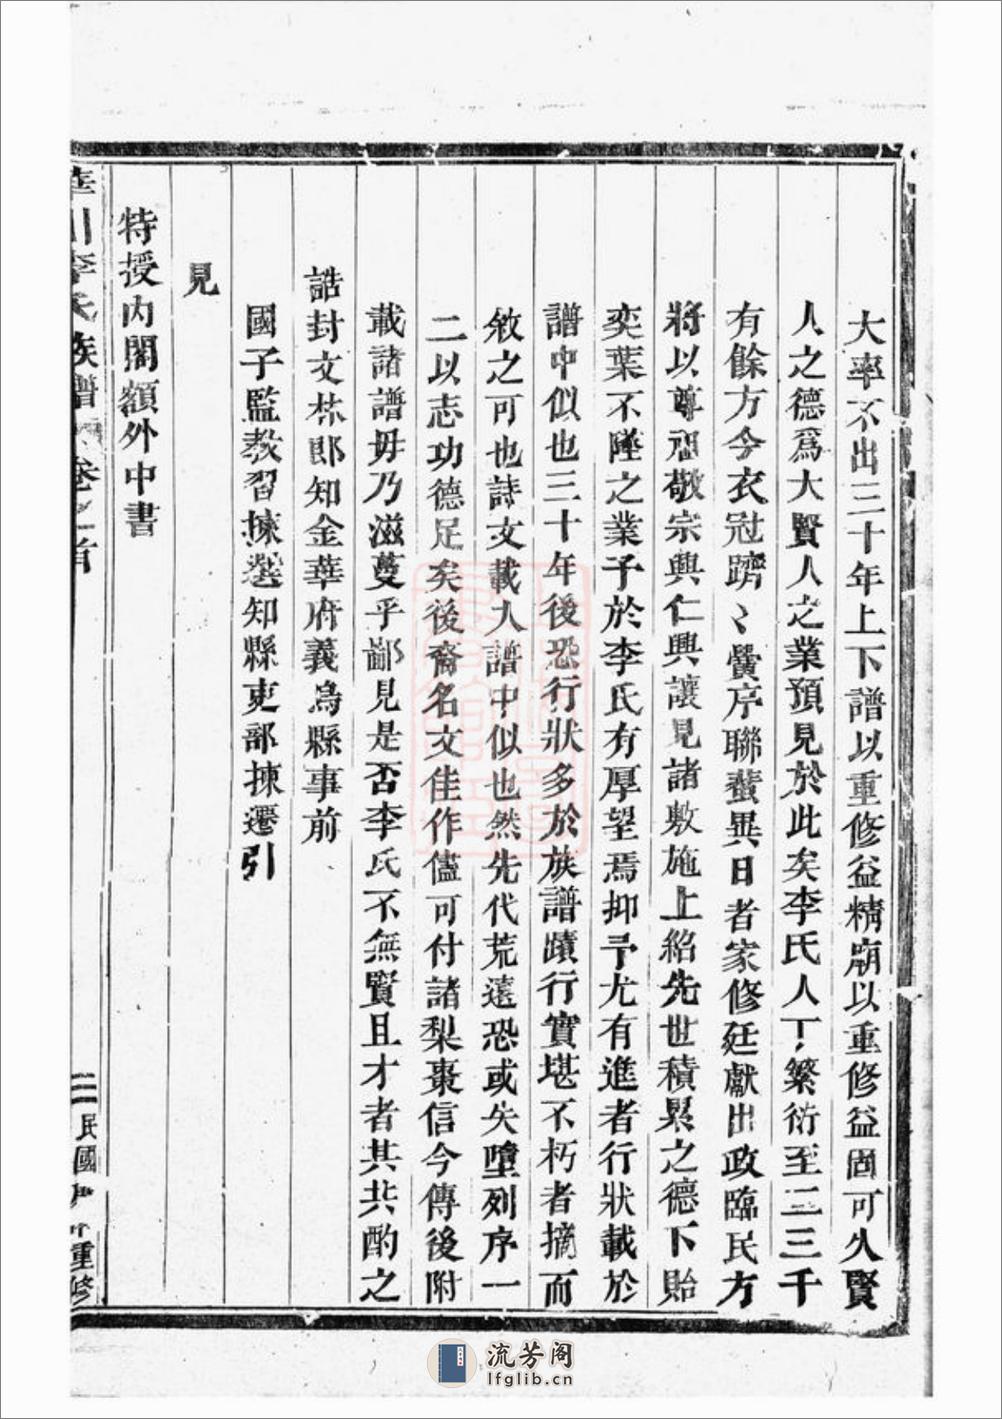 大率不出三十年上下譜以重修益精廟以重修益固可久賢
人之德爲大賢人之業預見於此矣李氏人丁繁衍至二三千
有餘方今衣冠躋〻黌序聯蜚異日者家修廷獻出政臨民方
將以尊祖敬宗興仁興讓見諸敷施上紹先世積累之德下貽
奕葉不墜之業予於李氏有厚望焉抑予尤有進者行狀載於
譜中似也三十年後恐行狀多於族譜蹟行實堪不朽者摘而
敘之可也詩文載入譜中似也然先代荒遠恐或失墮列序一
二以志功德足矣後裔名文佳作儘可付諸梨棗信今傳後附
載諸譜毋乃滋蔓乎鄙見是否李氏不無賢且才者其共酌之
誥封文林郎知金華府義烏縣事前
國子監教習揀選知縣吏部揀選引
見
特授內閣額外中書
華川李氏族譜 卷之首
二 民國 重修
流芳阁
lfglib.cn